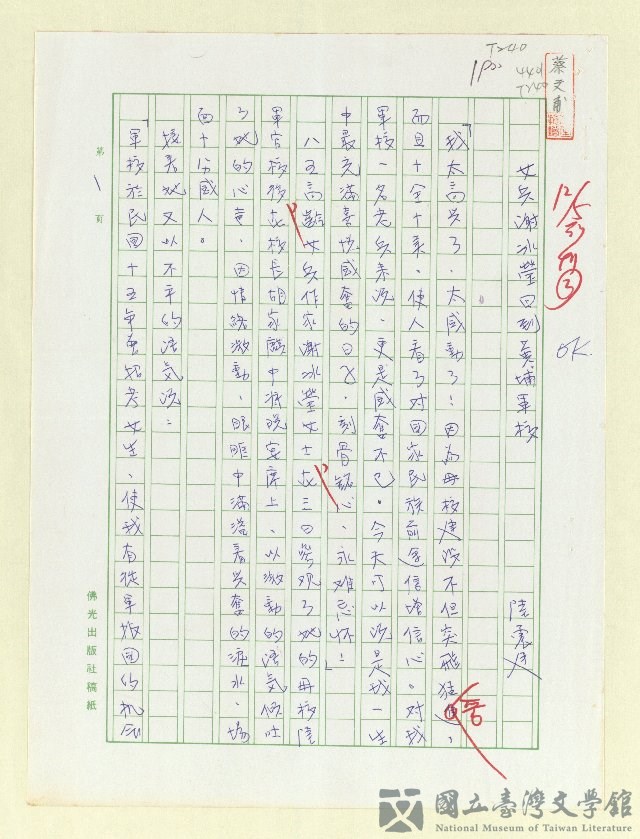 T240
1P
440
T240
蔡文甫
12/5
OK.
女兵謝冰瑩回到黃埔軍校
陸震廷
「我太高興了,太感動了!因為母校建設不但突飛猛進,
而且十全十美,使人看了對國家民族前途信增信心。對我
軍校一名老兵來說,更是感奮不已。今天可以說是我一生
中最充滿喜悅感奮的日子,刻骨銘心、永難忘懷!」
八五高齡女兵作家謝冰瑩女士在三日參觀了她的母校陸
軍官校後在校長胡家麒中將晚宴席上、以激動的語氣傾吐
了她的心意,因情緒激動,眼眶中滿溢着興奮的淚水,場
面十分感人。
接着她又以不平的語氣說:
「軍校於民國十五年開始考女生、使我有從軍報國的機會
第 1 頁
佛光出版社稿紙
國立臺灣文學館
National Museum of Taiwan Literature